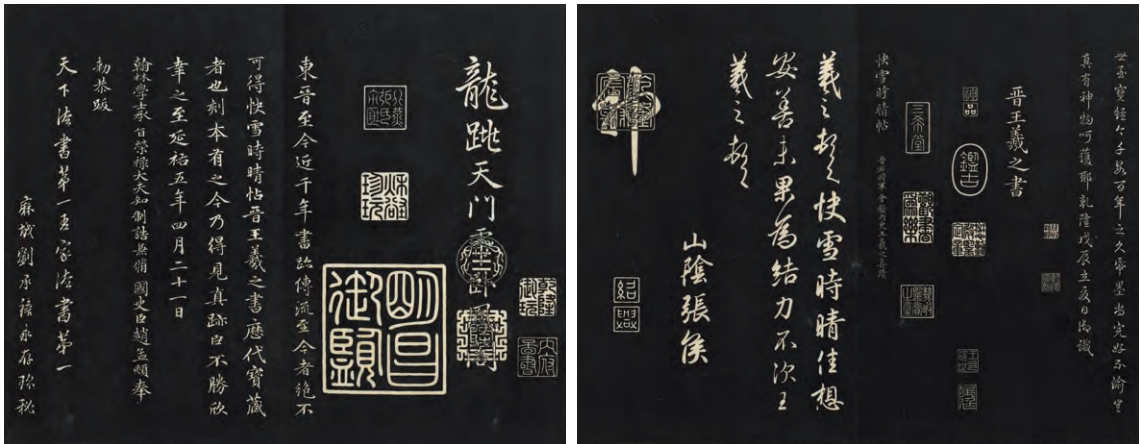 百年之久
墨尚完好不渝
真有神物呵護耶乾隆戊辰立夏日御識
晉王羲之書
神品
鑑古
三希堂
快雪時晴帖
羲之頓首快雪時晴佳想
安善未果為結力不次王
羲之頓首
山陰張侯
紹興
龍跳天門虎臥鳳閣
乾隆御玩
內府圖書
明昌御覽
秋壑珍玩
東晉至今近千年書跡傳流至今者絕不
可得快雪時晴帖晉王羲之書歷代寶藏
者也刻本有之今乃得見真跡臣不勝欣
幸之至延祐五年四月二十一日
翰林學士承旨榮祿大夫知制誥兼脩國史臣趙孟頫奉
勅恭跋
天下法書第一吾家法書第一
麻城劉承禧永存珍秘